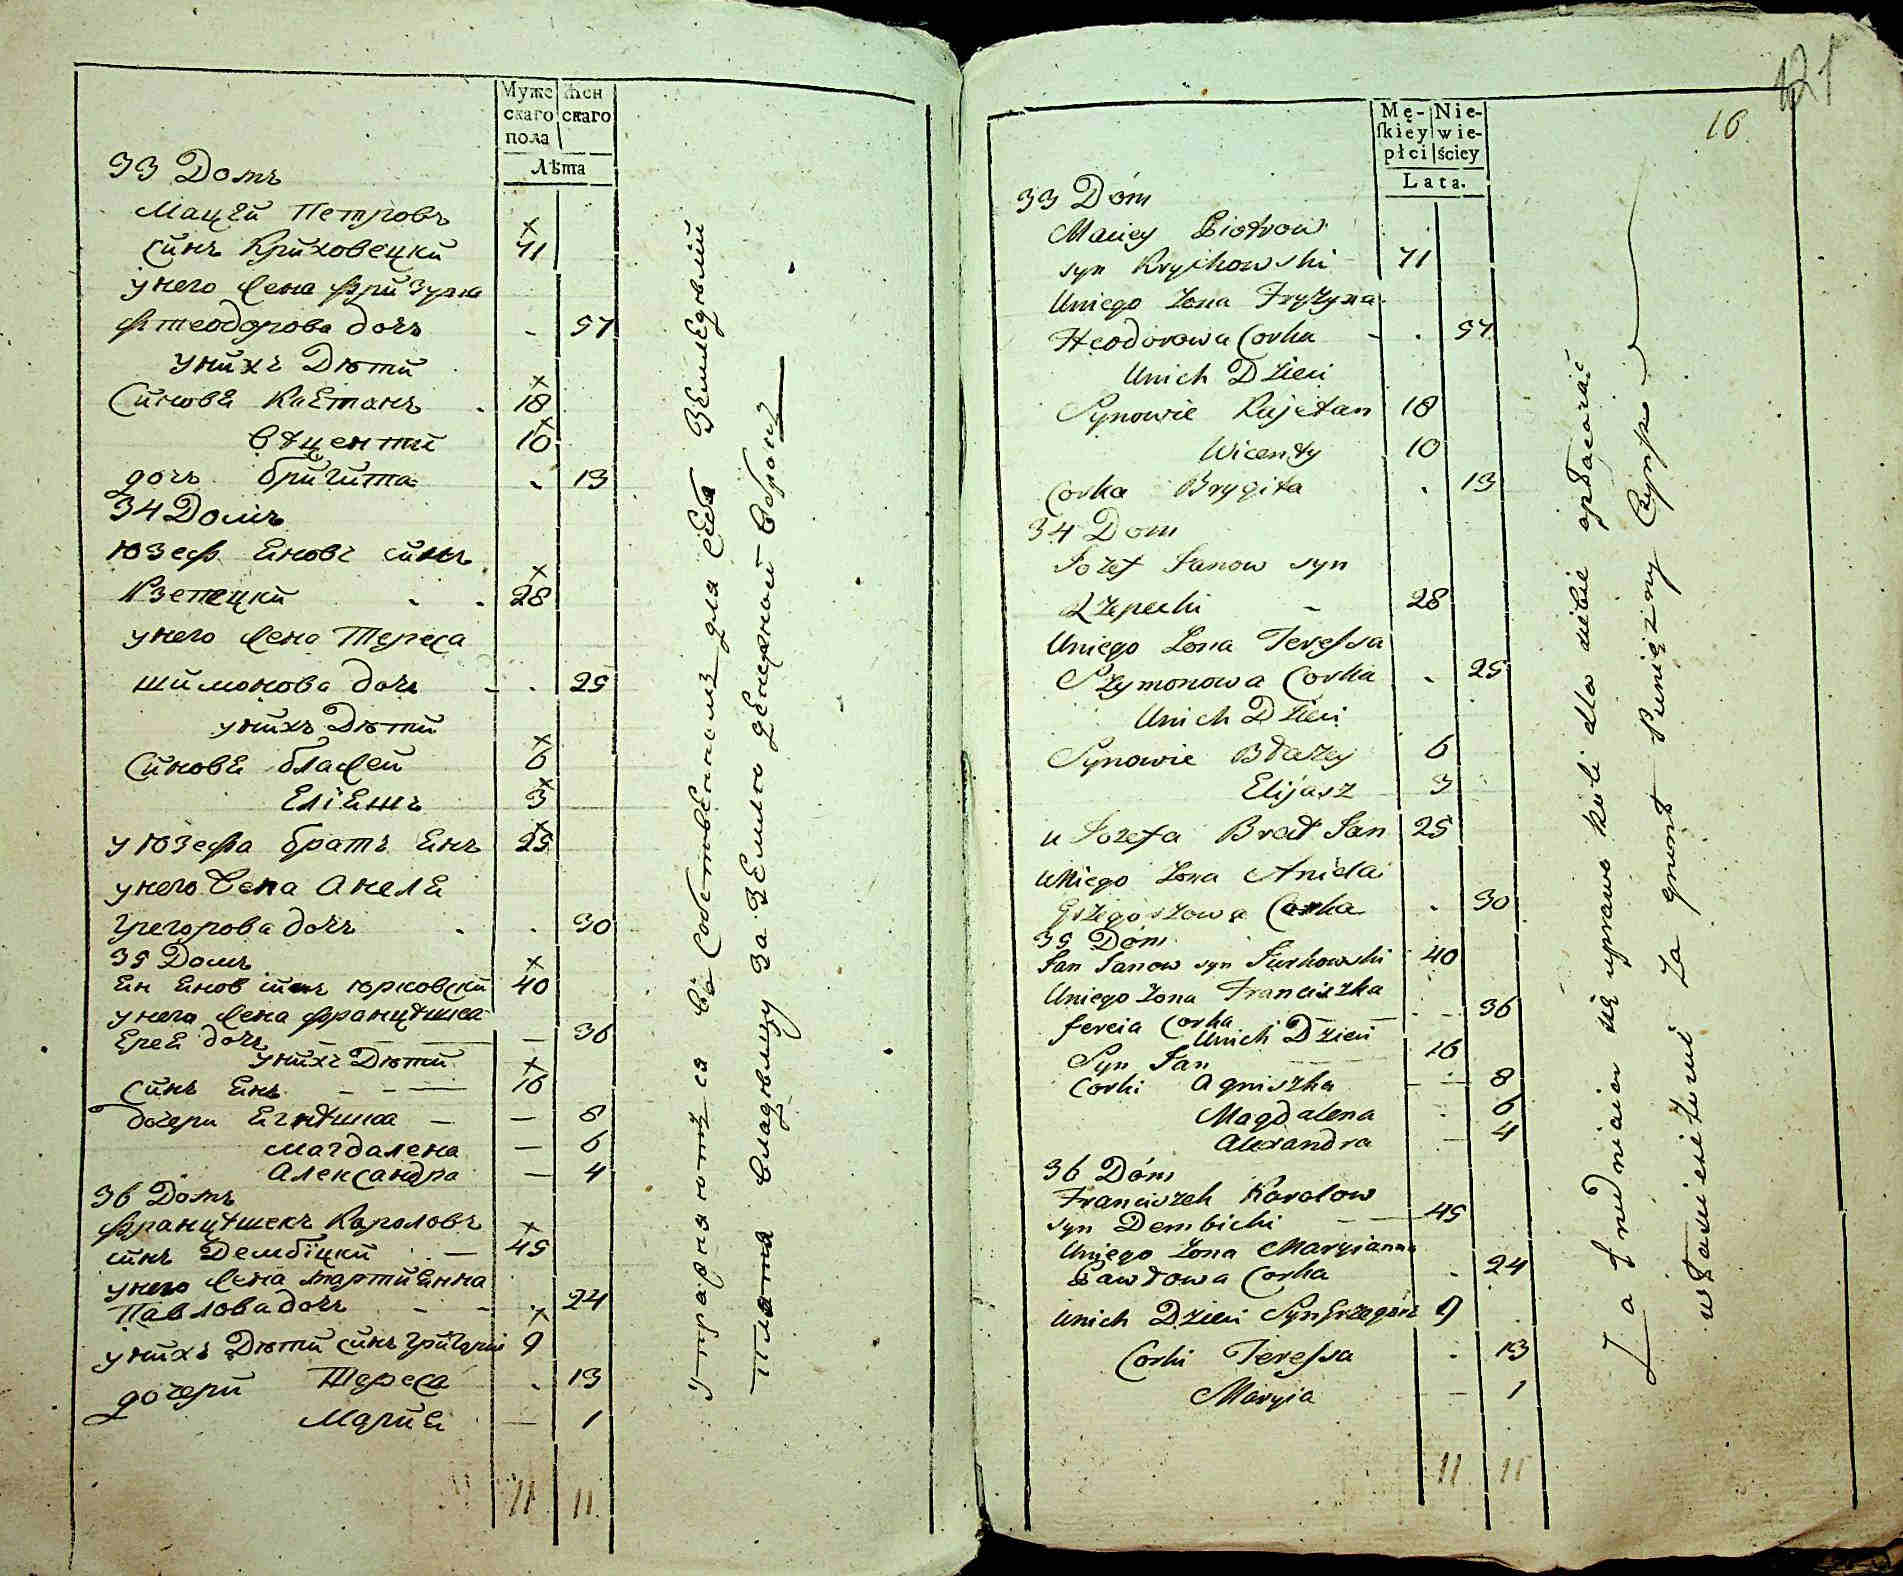 Муже
скаго
пола
Жен
скаго
Лѣта
33 Домъ
Мацѣй Петровъ
Синъ Криховецкй 71
у него Жена Фризурна
Фтеодорова дочъ - 57
У нихъ Дѣтй
Синовѣ Каетанъ . 18
Вѣцентй 10
дочъ Бригита . 13
34 Домъ
Юзеф Янов синъ
Рзепецкй . . 28
у него Жена Тереса
Шимонова дочъ - . 25
у нихъ Дѣтй
Синовѣ Блажей 6
Елѣяшъ 3
у Юзефа братъ Янъ 25
у него Жена Анеля
Грегорова дочъ . . 30
35 Домъ
Ян Янов синъ Юрковскй 40
у него Жена Францѣшка
Ереѣ дочъ — 36
у нихъ Дѣтй
Синъ Янъ - - — 16
дочери Ягнѣшка — — 8
Магдалена — 6
Александра — 4
36 Домъ
Францѣшекъ Кароловъ
синъ Дембѣцкй . — 45
у него Жена Мартиянна
Павлова дочъ - - . 24
у нихъ Дѣтй синъ Григорій 9
дочери Тереса . 13
Марія — 1
11 11
Упражняются въ собственномъ для себя Земледѣлій
Платя владѣльцу за Землю денежной оброкъ
121
16
Mę-
skiey
płci
Nie-
wie-
ściey
Lata.
33 Dóm
Maciey Piotrow
syn Krychowski 71
Uniego Zona Fryzyna
Fteodorowa Corka - . 57
Unich Dzieci
Synowie Kajetan 18
Wicenty 10
Corka Brygita . 13
34 Dom
Jozef Janow syn
Rzepecki - 28
Uniego Zona Teressa
Szymonowa Corka . 25
Unich Dzieci
Synowie Błazey 6
Elijasz 3
u Jozefa Brat Jan 25
Uniego Zona Aniela
Grzegorzowa Corka . 30
35 Dóm
Jan Janow syn Jurkowski 40
Uniego Zona Franciszka
Jereia Corka — . - 36
Unich Dzieci
Syn Jan 16
Corki Agniszka — 8
Magdalena . 6
Alexandra — 4
36 Dóm
Franciszek Karolow
syn Dembicki — 45
Uniego Zona Maryianna
Pawłowa Corka . 24
Unich Dzieci Syn Grzegorz 9
Corki Teressa . 13
Maryia — 1
11 11
Zatrudniaia się uprawą Roli dla siebie opłacaiąc
właścicielowi za grunt Pieniężny Czynsz